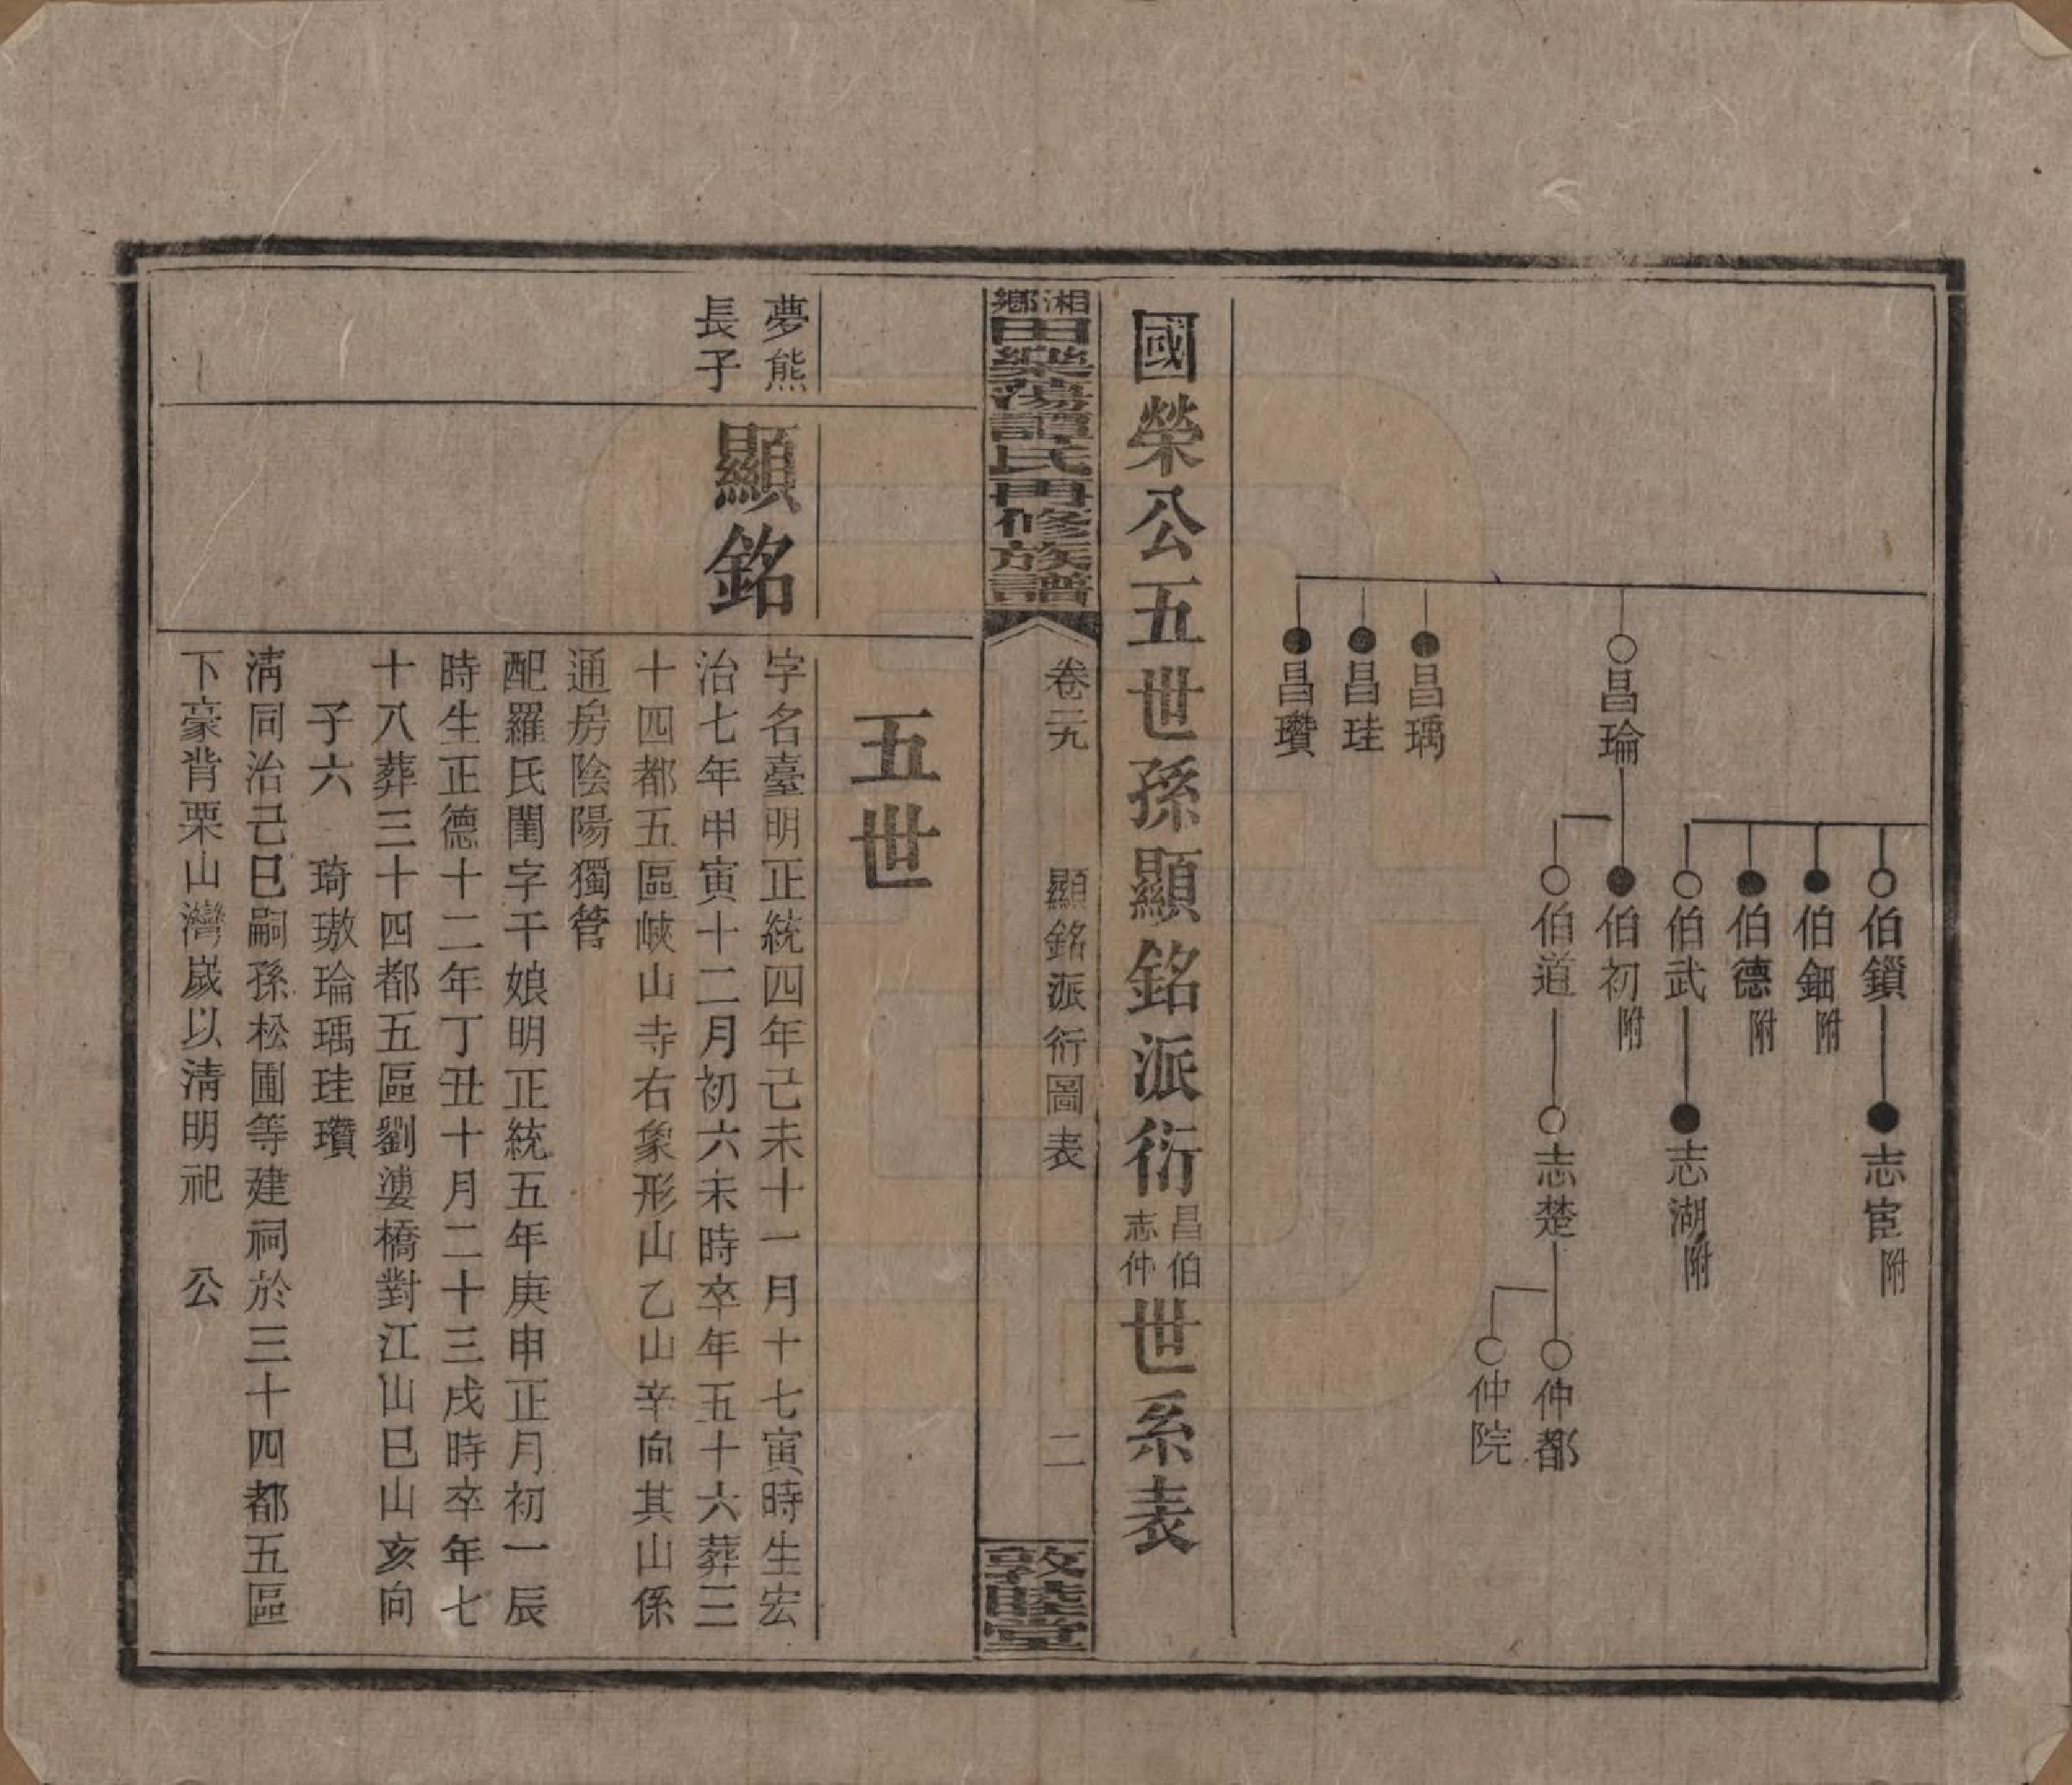 昌瑜
昌瑀
昌珪
昌瓚
伯鎖
伯鈿附
伯德附
伯武
伯初附
伯道
志宦附
志湖附
志楚
仲都
仲院
國榮公五世孫顯銘派衍昌伯志仲世系表
湘鄉田樂蕩譚氏四修族譜
卷二九
顯銘派衍圖表
二
敦睦堂
五世
夢熊
長子
顯銘
字名臺明正統四年己未十一月十七寅時生宏
治七年甲寅十二月初六未時卒年五十六葬三
十四都五區峽山寺右象形山乙山辛向其山係
通房陰陽獨管
配羅氏閨字干娘明正統五年庚申正月初一辰
時生正德十二年丁丑十月二十三戌時卒年七
十八葬三十四都五區劉婆橋對江山巳山亥向
子六 琦璈瑜瑀珪瓚
清同治己巳嗣孫松圃等建祠於三十四都五區
下豪背栗山灣歲以清明祀 公